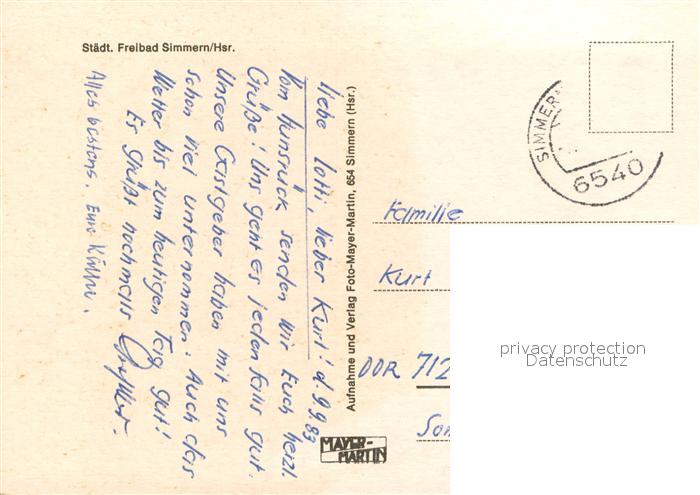 Städt. Freibad Simmern/Hsr.
liebe Lotti, lieber Kurt! d. 9.9.83
Vom Hunsrück senden wir Euch herzl.
Grüße! Uns geht es jedenfalls gut.
Unsere Gastgeber haben mit uns
schon viel unternommen. Auch das
Wetter bis zum heutigen Tag gut!
Es grüßt nochmals
Alles bestens. Eure Käthe.
Aufnahme und Verlag Foto-Mayer-Martin, 654 Simmern (Hsr.)
MAYER-
MARTIN
SIMMER
6540
Familie
Kurt
DDR 712
Son
privacy protection
Datenschutz